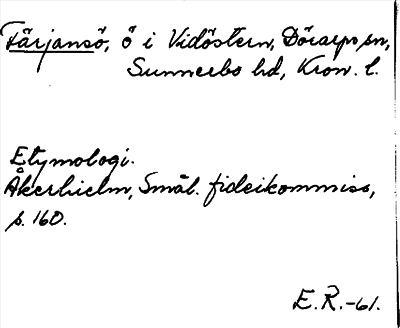 Färjansö, ö i Vidöstern, Dörarps sn,
Sunnerbo hd, Kron. l.
Etymologi.
Åkerhielm, Smål. fideikommiss,
s. 160.
E.R.-61.